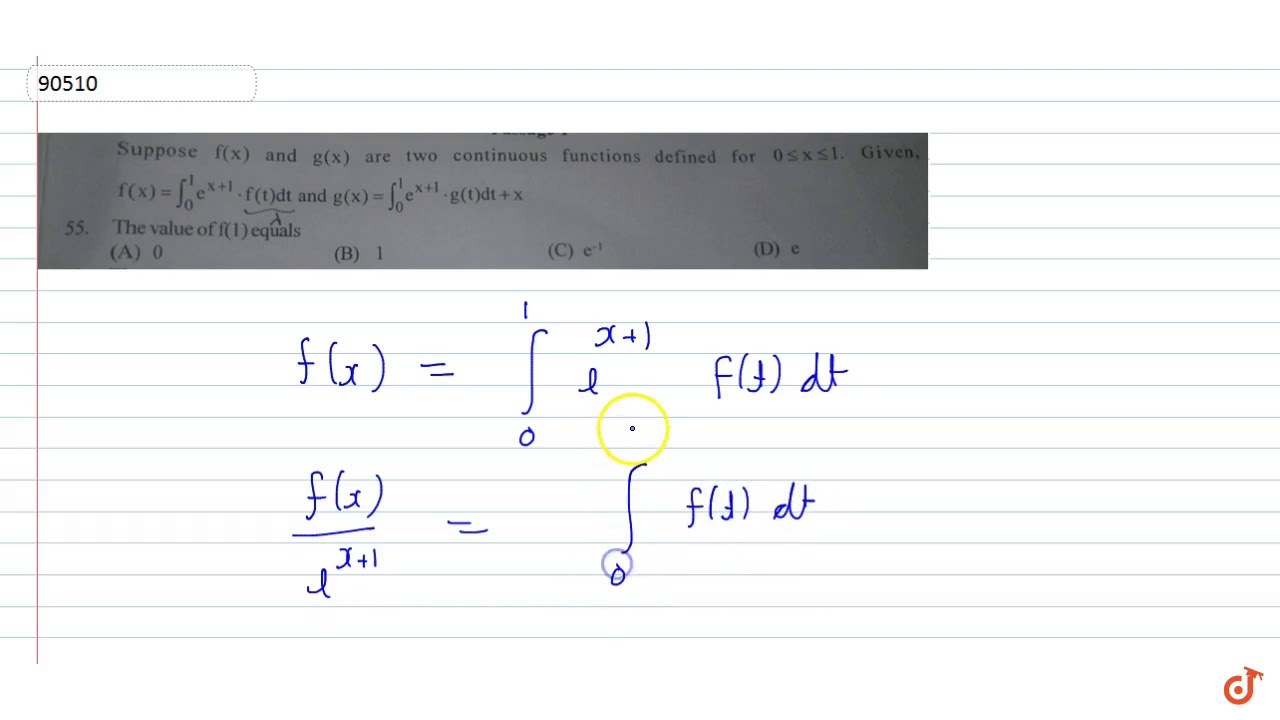 90510
Suppose f(x) and g(x) are two continuous functions defined for 0≤x≤1. Given,
f(x)=∫₀¹eˣ⁺¹·f(t)dt and g(x)=∫₀¹eˣ⁺¹·g(t)dt+x
λ
55. The value of f(1) equals
(A) 0 (B) 1 (C) e⁻¹ (D) e
f(x) = ∫₀¹ eˣ⁺¹ f(t) dt
f(x)/eˣ⁺¹ = ∫₀ f(t) dt